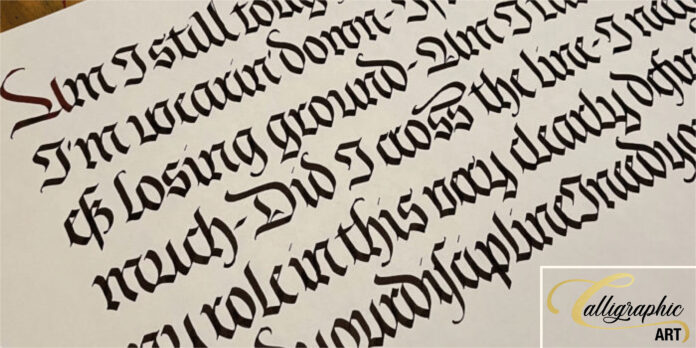 Am I still toug
I'm wearin down-I
& losing ground-Am I
much-Did I cross the line-I nee
my role in this very clearly defin
your discipline I need yo
Calligraphic
ART